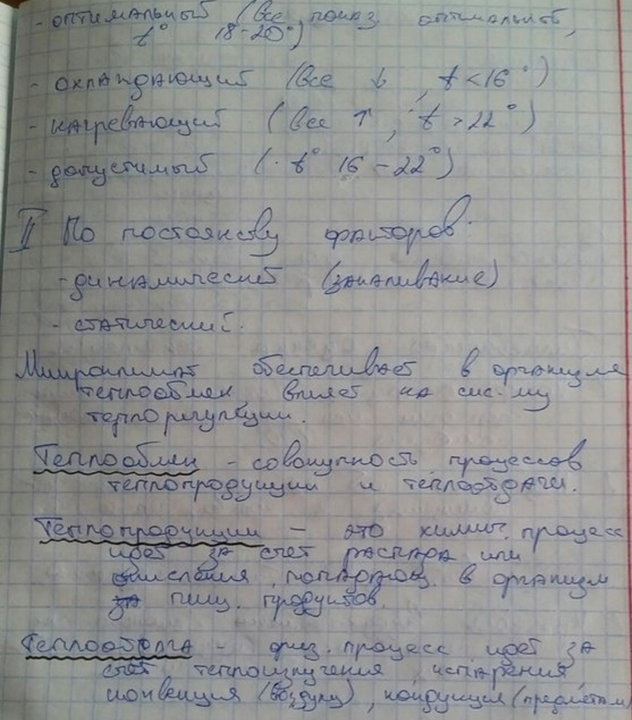 - оптимальный (все показ. оптимальные,
t° 18-20°)
- охлаждающий (все ↓, t < 16°)
- нагревающий (все ↑, t > 22°)
- допустимый (t° 16-22°)
II По постоянству факторов.
- динамический (закаливание)
- статический.
Микроклимат обеспечивает в организме
теплообмен, влияет на сис-му
терморегуляции.
Теплообмен - совокупность процессов
теплопродукции и теплоотдачи.
Теплопродукции - это химич. процесс
идет за счет распада или
окисления попадающ. в организм
за пищ. продуктов.
Теплоотдача - физ. процесс идет за
счет теплоизлучения, испарения,
конвекция (воздуху), кондукция (предметам)